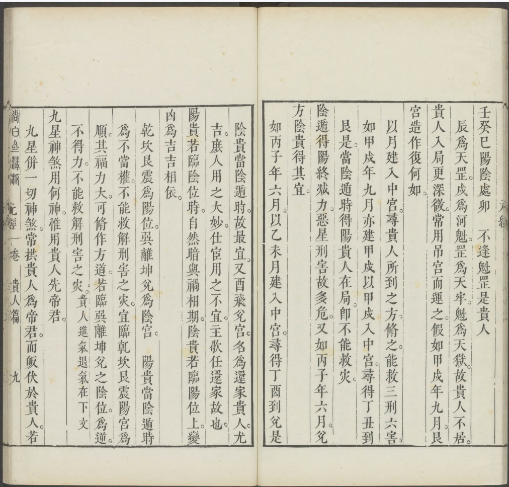 壬癸巳陽陰處卯　不逢魁罡是貴人
辰爲天罡。戌爲河魁。罡爲天牢。魁爲天獄。故貴人不居。
貴人入局更深微。常用弔宮而運之。假如甲戌年九月。艮
宮造作復何如。
以月建入中宮。尋貴人所到之方脩之。能救三刑六害。
如甲戌年九月亦建甲戌。以甲戌入中宮。尋得丁丑到
艮。是當陰遁時。得陽貴人在局。卽不能救災。
陰遁得陽終獄力。惡星刑害故多危。又如丙子年六月。兌
方陰貴得其宜。
如丙子年六月。以乙未月建入中宮。尋得丁酉到兌。是
陰貴當陰遁時。故最宜。又酉乘兌宮。名爲還家貴人。尤
吉。庶人用之大妙。仕宦用之不宜。主歌任還家故也。
陽貴若臨陰位時。自然暗與禍相期。陰貴若臨陽位上。變
凶爲吉吉相依。
乾坎艮震爲陽位。巽離坤兌爲陰宮　陽貴當陰遁時
爲不當權。不能救解刑害之災。宜臨乾坎艮震陽宮爲
順。其福力大。可脩作方道。若臨巽離坤兌之陰位爲逆。
不得力。不能救解刑害之災。貴人進氣退氣在下文
九星神煞用何神。惟用貴人先帝君。
九星併一切神煞。常拱貴人爲帝君。而皈伏於貴人。若
元 一卷 貴人篇 九